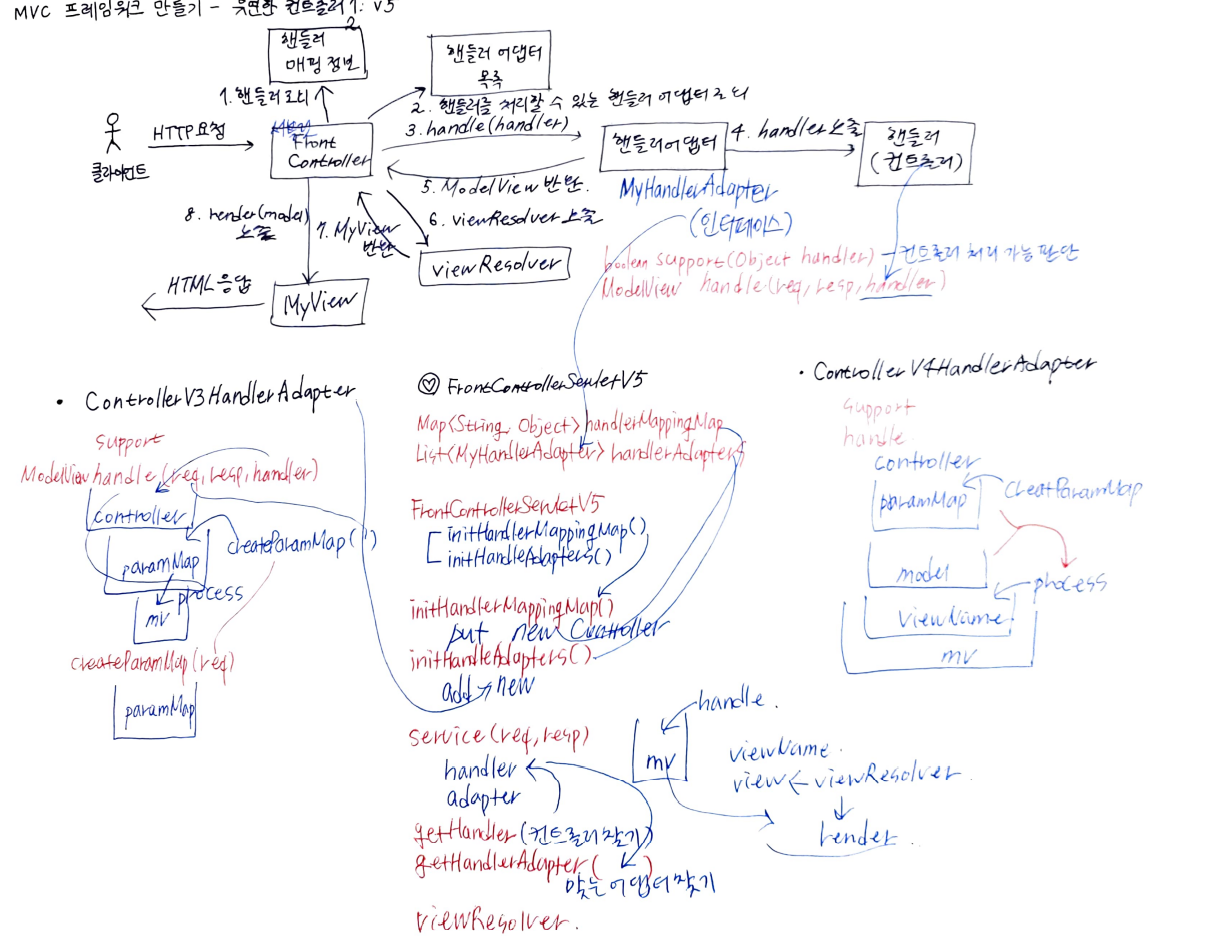 MVC 프레임워크 만들기 - 유연한 컨트롤러1: v5
2
핸들러
매핑 정보
핸들러 어댑터
목록
1. 핸들러 조회
2. 핸들러를 처리할 수 있는 핸들러 어댑터 조회
HTTP 요청
Front
Controller
3. handle(handler)
핸들러어댑터
4. handler 호출
핸들러
(컨트롤러)
클라이언트
5. ModelView 반환.
MyHandlerAdapter
(인터페이스)
8. render(model)
호출
7. MyView
반환
6. viewResolver 호출
viewResolver
boolean support(Object handler) - 컨트롤러 처리 가능 판단
ModelView handle(req, resp, handler)
HTML 응답
MyView
• ControllerV3HandlerAdapter
support
ModelView handle(req, resp, handler)
controller
paramMap
createParamMap()
process
mv
createParamMap(req)
paramMap
♡ FrontControllerSevletV5
Map<String, Object> handlerMappingMap
List<MyHandlerAdapter> handlerAdapters
FrontControllerSevletV5
initHandlerMappingMap()
initHandleAdapters()
initHandlerMappingMap()
put new Controller
initHandleAdapters()
add new
service(req, resp)
handler
adapter
getHandler(컨트롤러 찾기)
getHandlerAdapter( )
맞는 어댑터 찾기
viewResolver.
handle.
mv
viewName.
view ← viewResolver.
render.
• ControllerV4HandlerAdapter
support
handle.
controller
paramMap
creatParamMap
model
process
viewName
mv